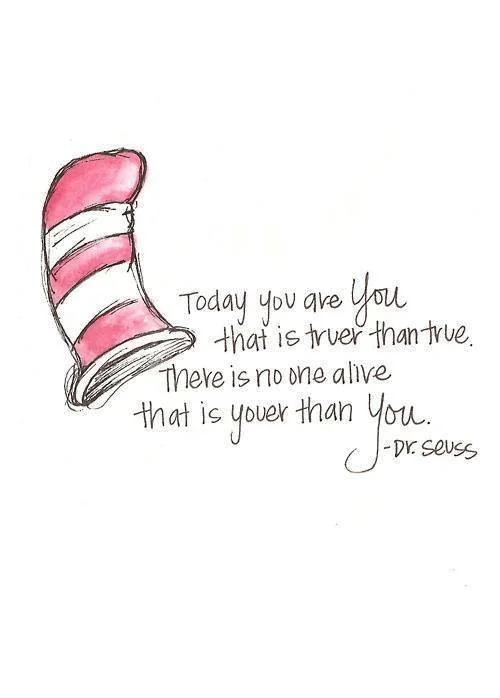 Today you are You
that is truer than true.
There is no one alive
that is youer than You.
-Dr. Seuss